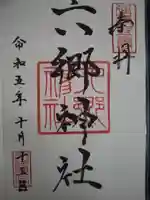 奉拝
六郷神社
令和五年十月十五日